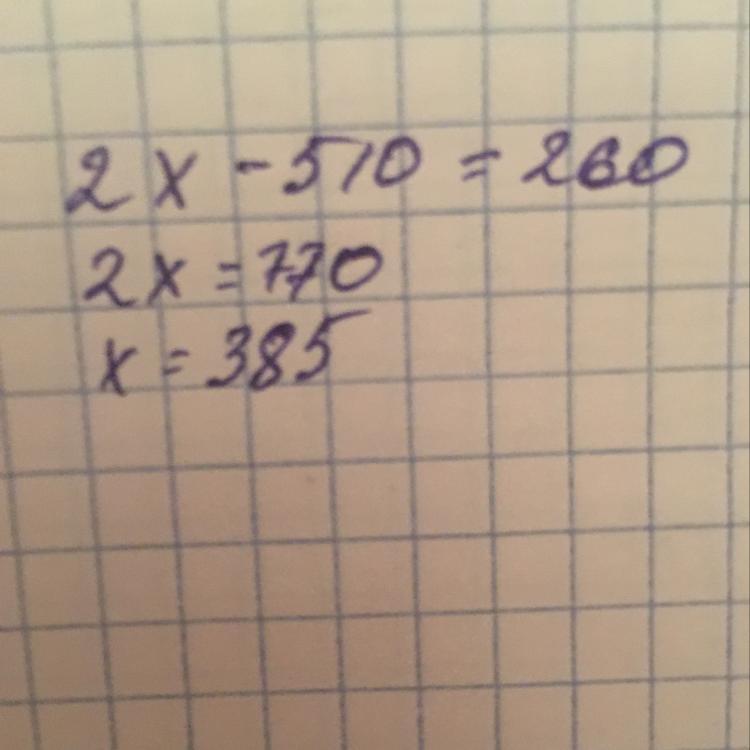 2x - 510 = 260
2x = 770
x = 385